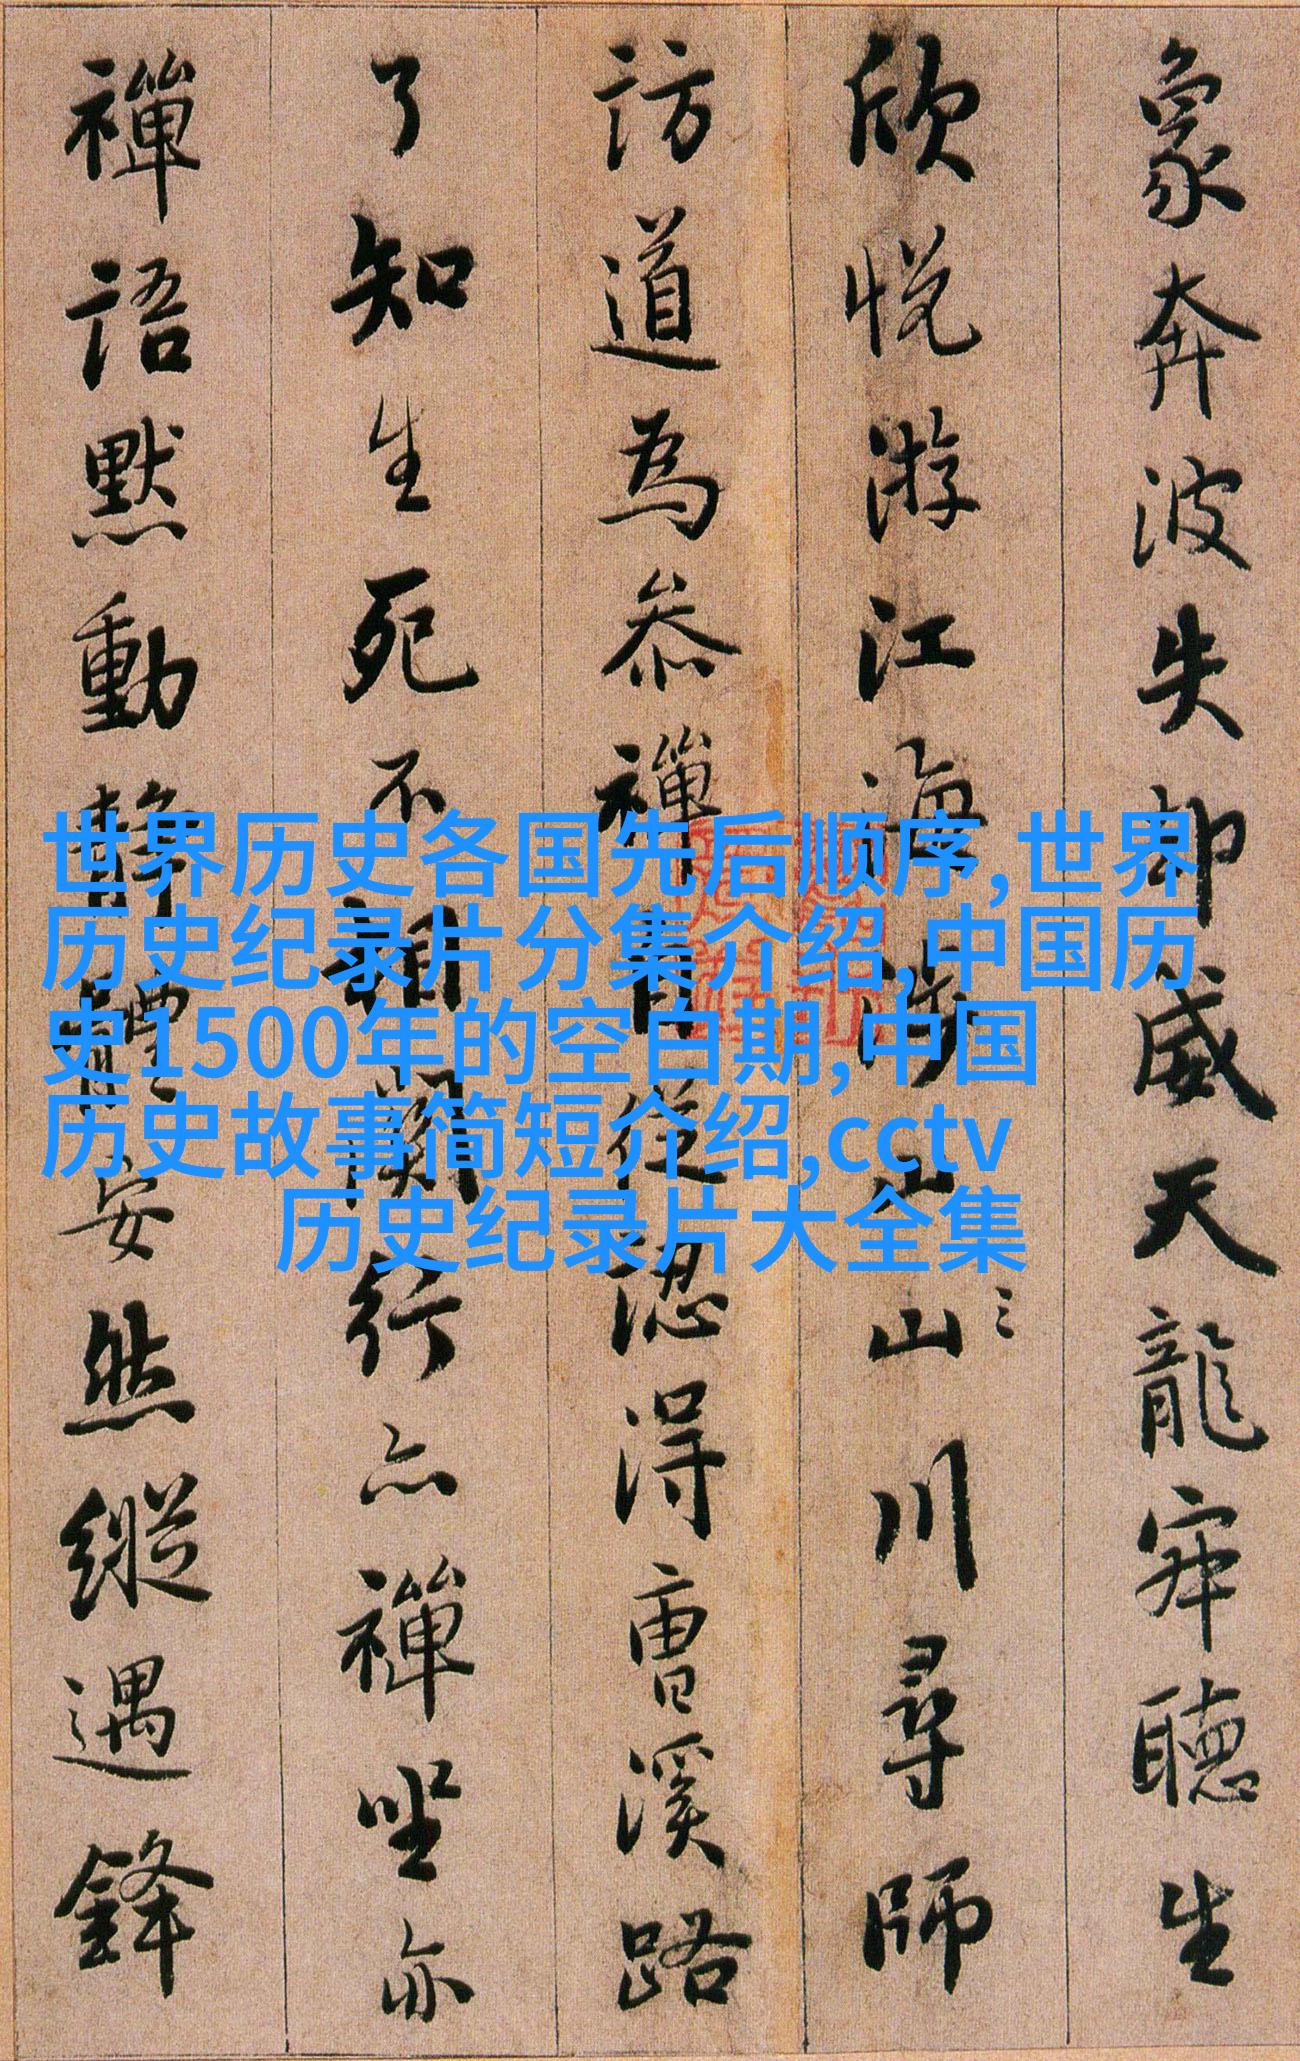 象奔波失却威天龍寂聽生
欣悅游江海涉山山川尋師
訪道為叅禪自從認得曹溪路
了知生死不相關行亦禪坐亦
禪語默動靜體安然縱遇鋒
世界历史各国先后顺序,世界
历史纪录片分集介绍,中国历
史1500年的空白期,中国
历史故事简短介绍,cctv
历史纪录片大全集